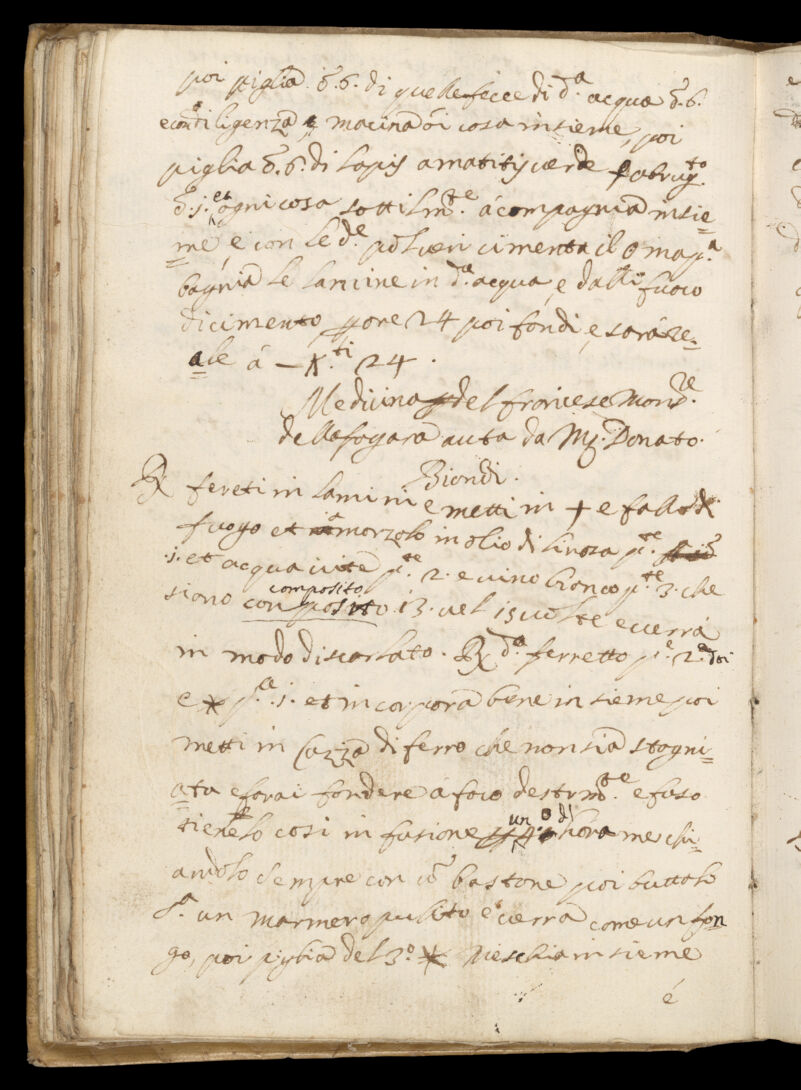 poi piglia ℥. 6. di quelle fecce di d.ª acqua ℥. 6.
e con diligenza macina ōi cosa insieme, poi
piglia ℥. 6. di lapis amatitis verde
℥. j. et ogni cosa sottilm.te acompagnia insie=
me, e con le d.e polveri cimenta il
bagnia le lamine in d.ª acqua, e dalli fuoco
di cimento ore 24 poi fondi, e sará re=
ale á – K.ti 24.
Medicina del francese Mons.re
della fogara auta da M. Donato
Biondi.
℞ fereti in lamini e metti in + e fallo di
fuogo et smorzolo in olio di linosa p.te
.j. et acqua vite p.te 2. e vino bianco p.te 3. che
siano composito
composito 13. vel 15 volte e verrá
in modo di scarlato. ℞ d.º ferretto p.e 2. doi
e * p.e .j. et incorpora bene insieme poi
metti in Cazza di ferro che non sia stogni=
ata e forai fondere á foco destrm.te e fuso
tienelo cosi in fusione un di hora meschi=
andolo sempre con ū bastone poi buttalo
s.ª un marmero pulito e verra come un fon
go, poi piglia del 3.º * Meschia insieme
é